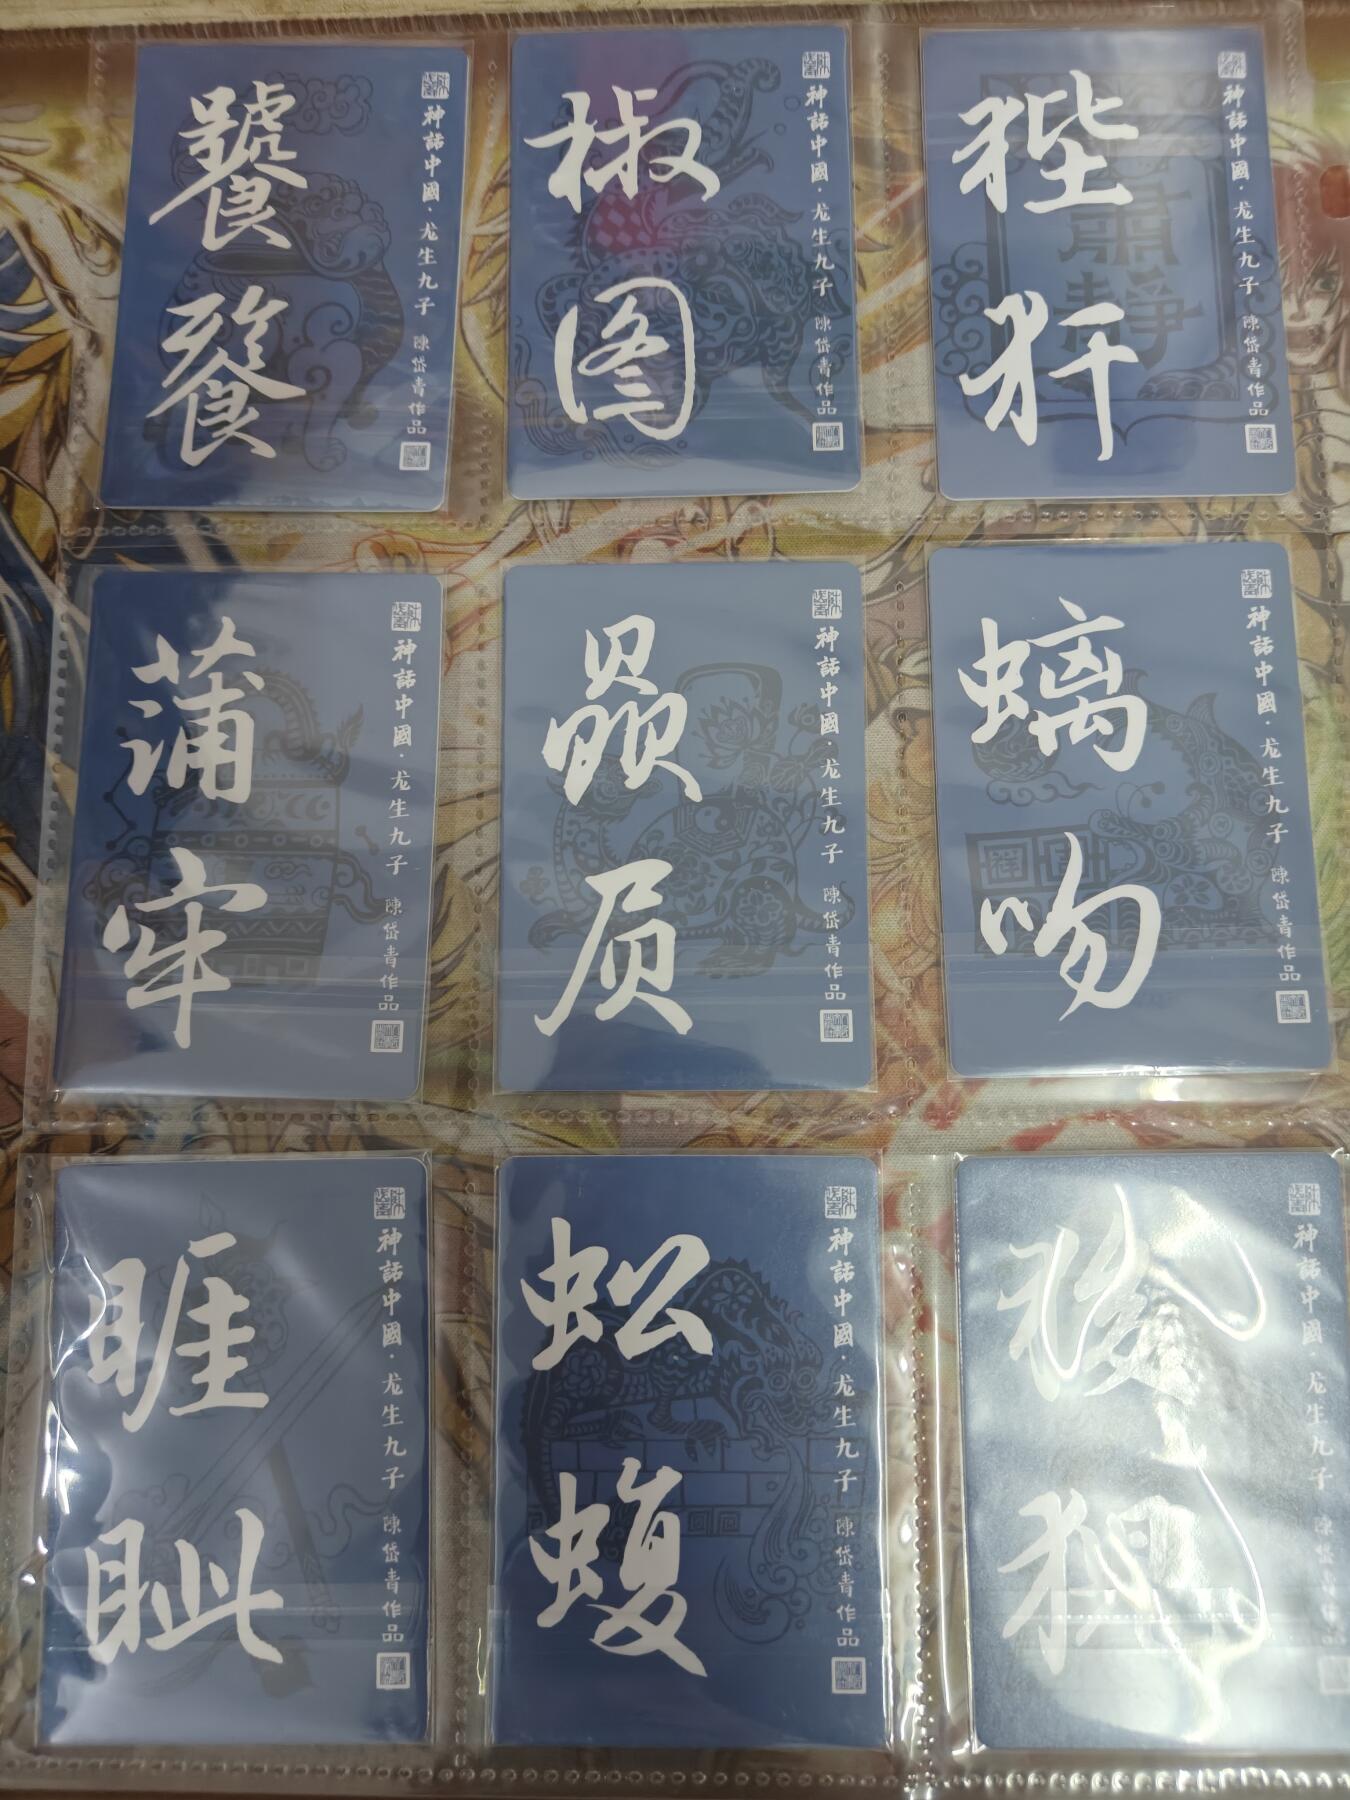 饕餮
神話中國·龙生九子 陳岱青作品
椒图
神話中國·龙生九子 陳岱青作品
狴犴
肅靜
神話中國·龙生九子 陳岱青作品
蒲牢
神話中國·龙生九子 陳岱青作品
赑屃
神話中國·龙生九子 陳岱青作品
螭吻
神話中國·龙生九子 陳岱青作品
睚眦
神話中國·龙生九子 陳岱青作品
蚣蝮
神話中國·龙生九子 陳岱青作品
狻猊
神話中國·龙生九子 陳岱